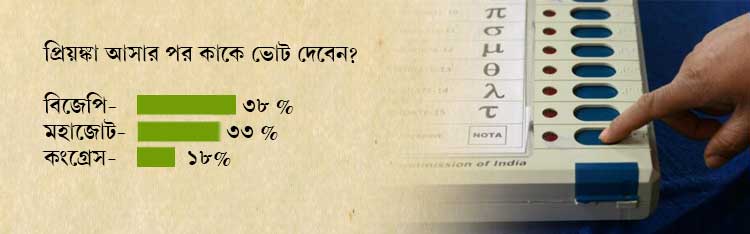 প্রিয়ঙ্কা আসার পর কাকে ভোট দেবেন?
বিজেপি- ৩৮ %
মহাজোট- ৩৩ %
কংগ্রেস- ১৮%
π
σ
μ
θ
λ
τ
NOTA
mmission of India